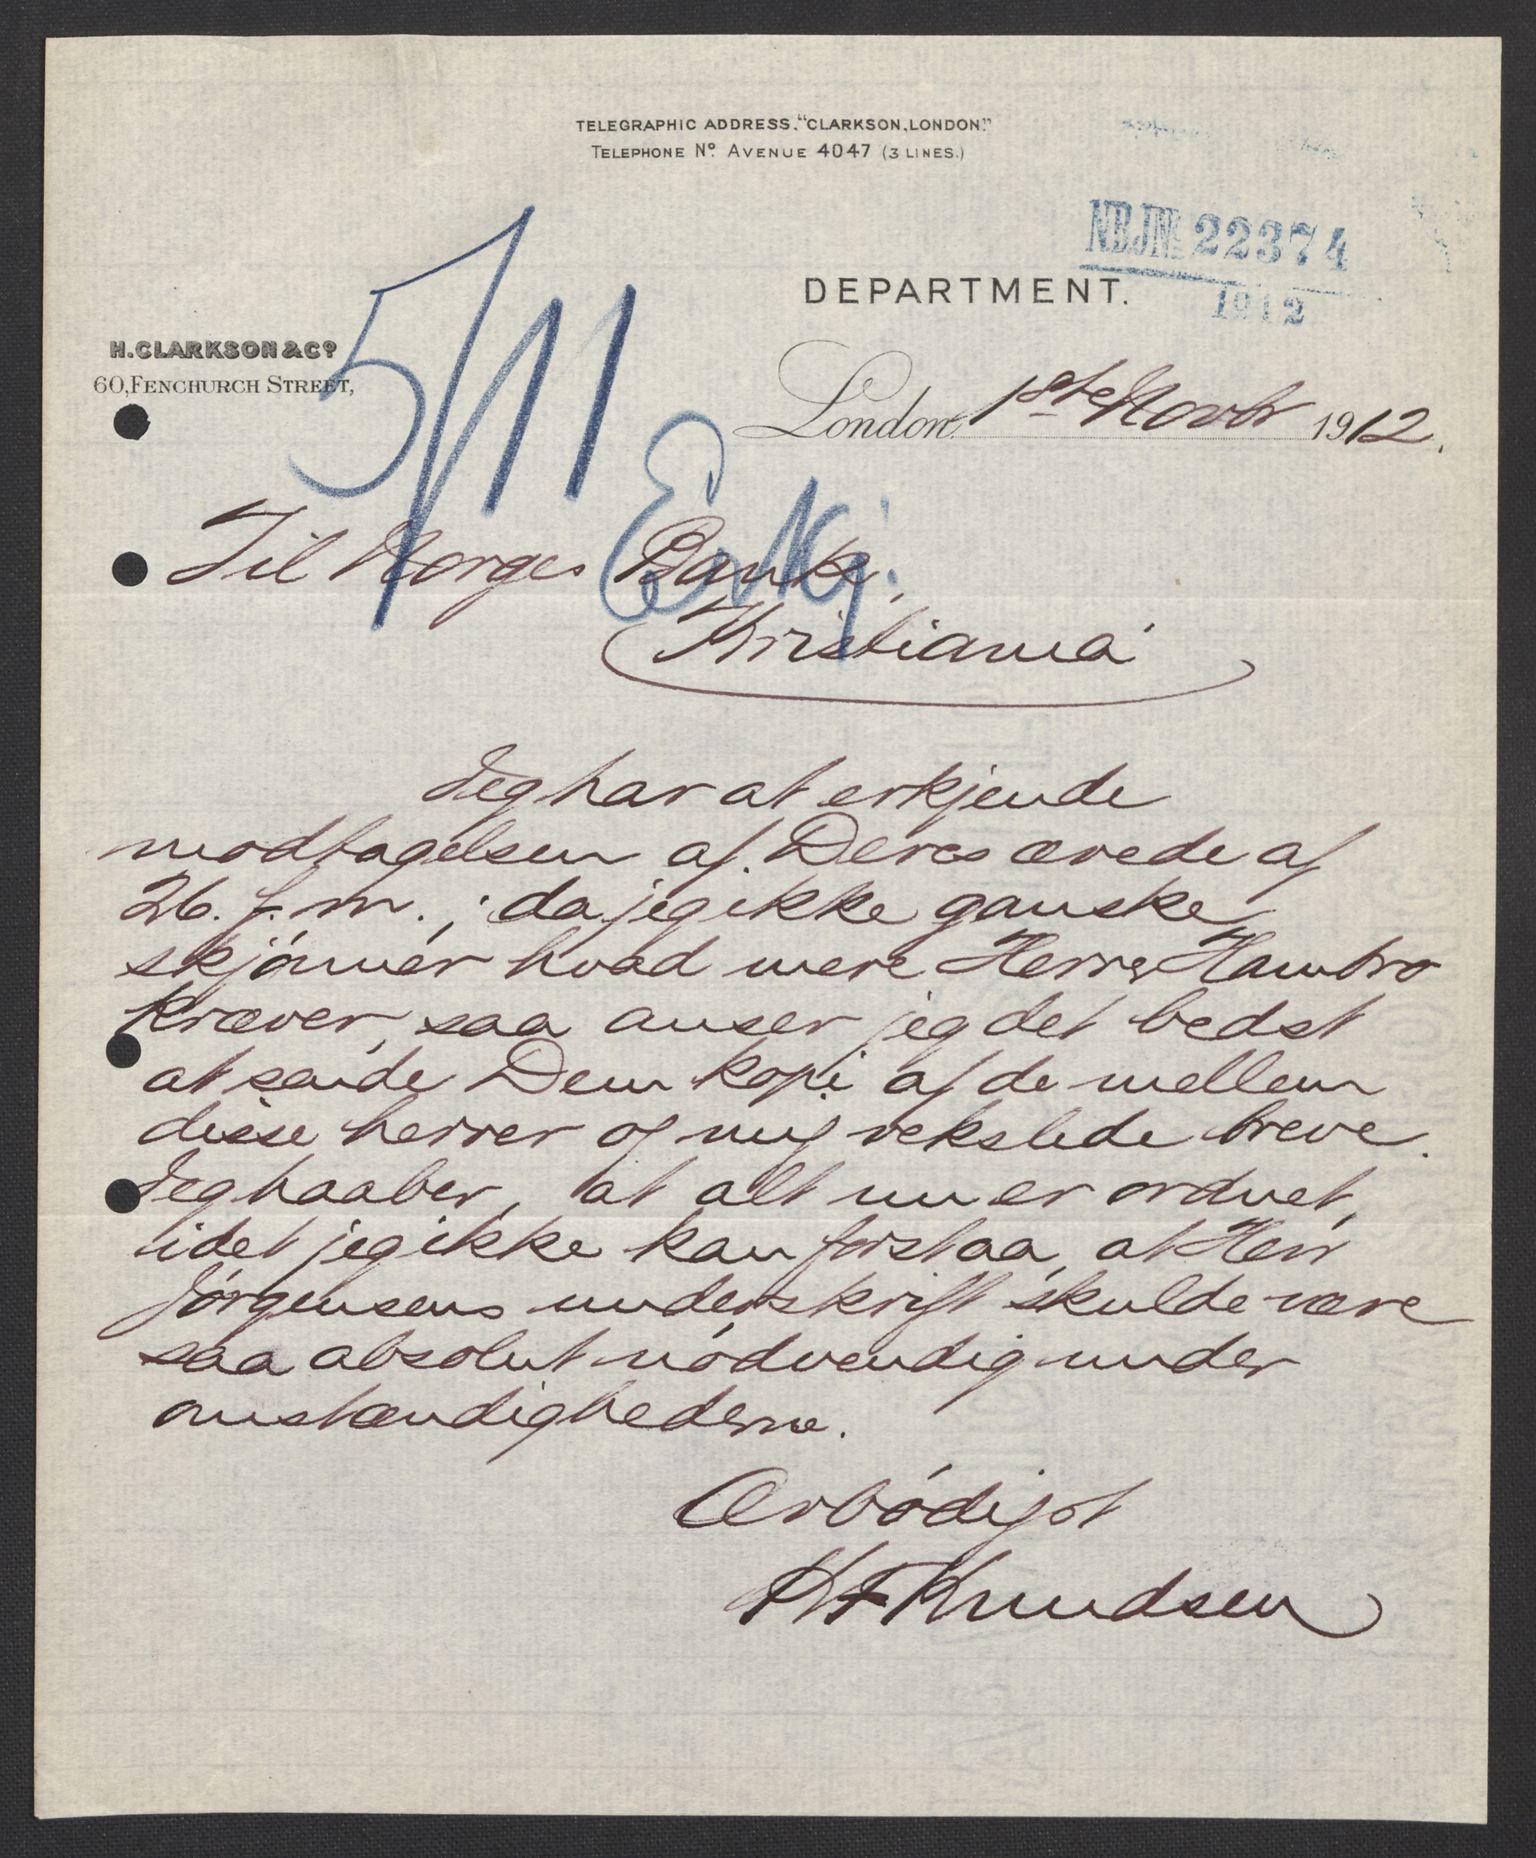 TELEGRAPHIC ADDRESS, "CLARKSON, LONDON."
TELEPHONE No. AVENUE 4047 (3 LINES.)
NBJN: 22374
1912
DEPARTMENT.
H. CLARKSON & Co.
60, FENCHURCH STREET,
London, 1ste Novbr 1912.
5/11
Til Norges Bank,
Kristiania
Jeg har at erkjende
modtagelsen af Deres ærede af
26. f. m.; da jeg ikke ganske
skjönner hvad mere Herrer Hambro
kræver, saa anser jeg det bedst
at sende Dem kopi af de mellem
disse herrer og mig vekslede breve.
Jeg haaber, at alt nu er ordnet,
idet jeg ikke kan forstaa, at Herr
Jörgensens underskrift skulde være
saa absolut nödvendig under
omstændighederne.
Ærbödigst
H F Knudsen